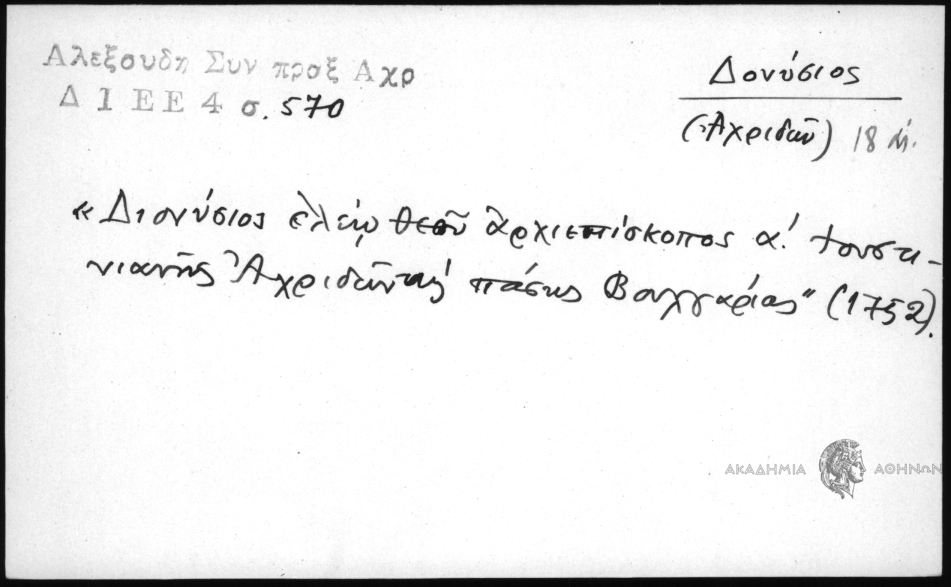 Αλεξουδη Συν προξ Αχρ
Δ 1 Ε Ε 4 σ. 570
Δονύσιος
(Ἀχριδῶν) 18 αἰ.
« Διονύσιος ἐλέῳ θεοῦ ἀρχιεπίσκοπος α΄. Ἰουστι-
νιανῆς Ἀχριδῶν πάσης Βουλγαρίας" (1752).
ΑΚΑΔΗΜΙΑ ΑΘΗΝΩΝ